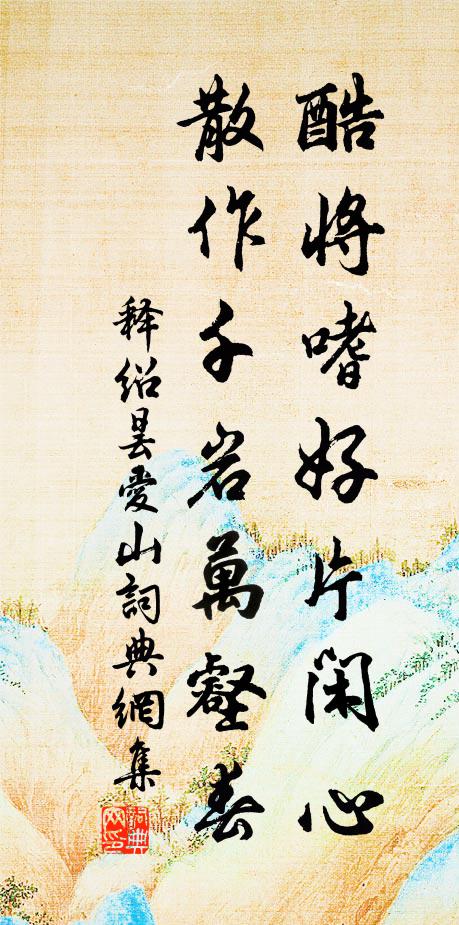 酷將嗜好片閑心
散作千岩萬壑春
釋紹曇愛山詞典網集
詞典
网印